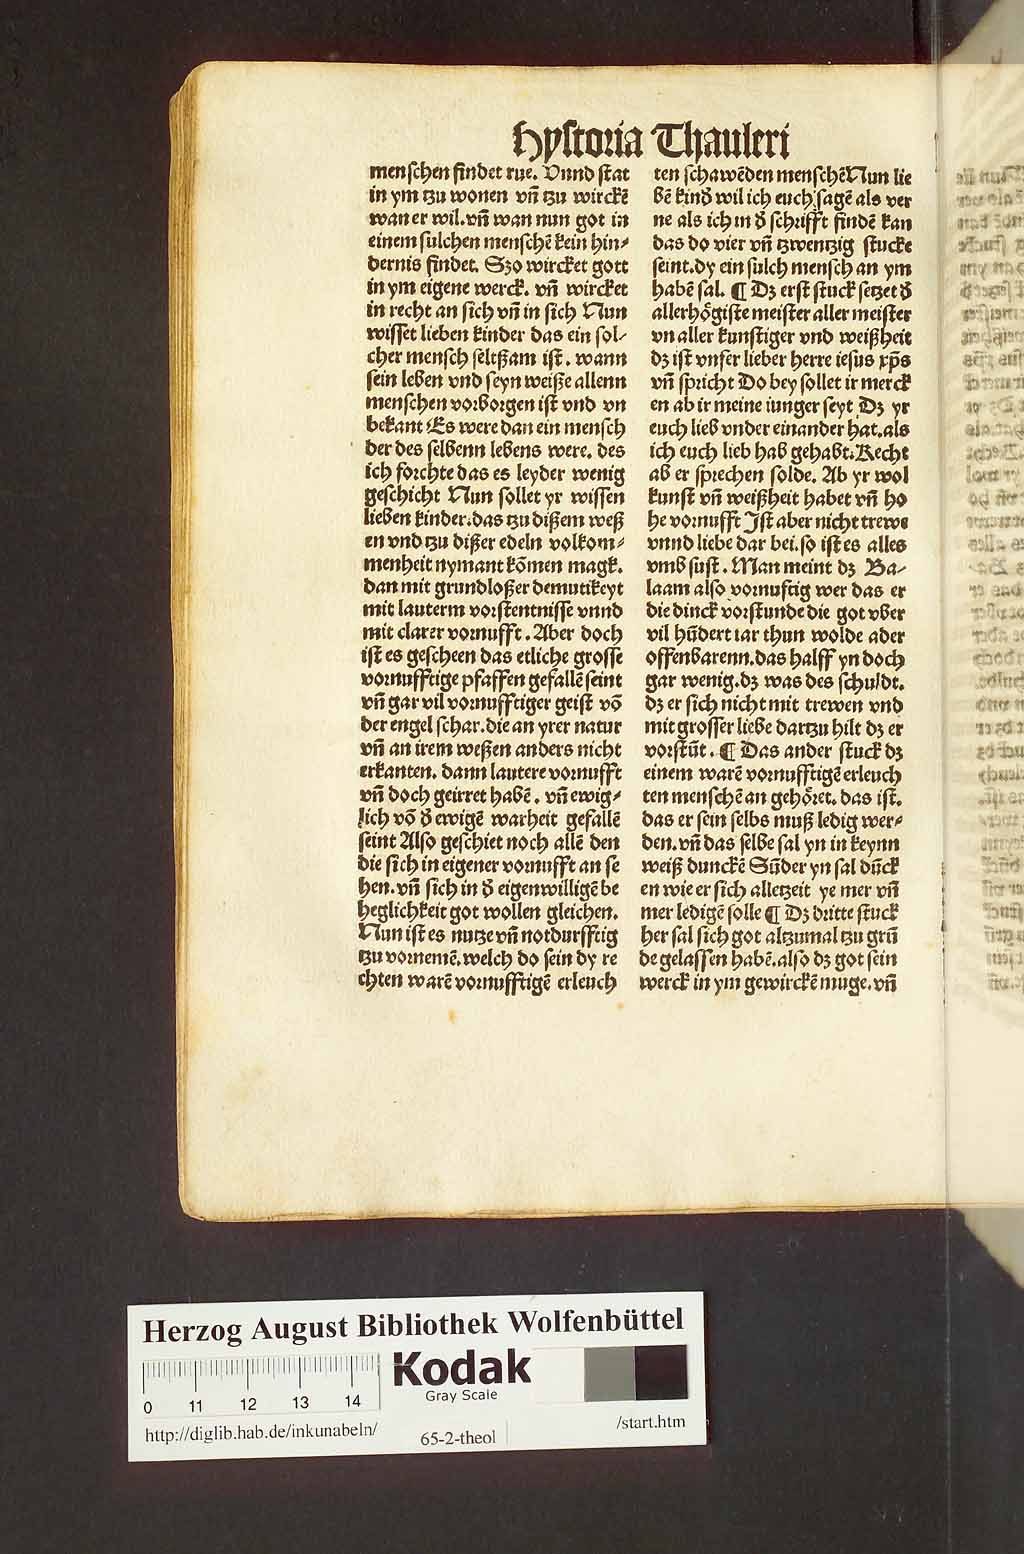 Hystoria Thauleri
menschen findet rue. Vnnd stat
in ym tzu wonen vn̄ tzu wirckē
wan er wil. vn̄ wan nun got in
einem sulchen menschē kein hin⸗
dernis findet. Szo wircket gott
in ym eigene werck. vn̄ wircket
in recht an sich vn̄ in sich Nun
wisset lieben kinder das ein sol⸗
cher mensch seltßam ist. wann
sein leben vnd seyn weiße allenn
menschen vorborgen ist vnd vn
bekant Es were dan ein mensch
der des selbenn lebens were. des
ich forchte das es leyder wenig
geschicht Nun sollet yr wissen
lieben kinder. das tzu dißem weß
en vnd tzu dißer edeln volkom⸗
menheit nymant kōmen magk.
dan mit grundloßer demutikeyt
mit lauterm vorstentnisse vnnd
mit clarer vornufft. Aber doch
ist es gescheen das etliche grosse
vornufftige pfaffen gefallē seint
vn̄ gar vil vornufftiger geist vō
der engel schar. die an yrer natur
vn̄ an irem weßen anders nicht
erkanten. dann lautere vornufft
vn̄ doch geirret habē. vn̄ ewig⸗
lich vō đ ewigē warheit gefallē
seint Also geschiet noch allē den
die sich in eigener vornufft an se
hen. vn̄ sich in đ eigenwilligē be
heglichkeit got wollen gleichen.
Nun ist es nutze vn̄ notdurfftig
tzu vornemē. welch do sein dy re
chten warē vornufftigē erleuch
ten schawēden menschē Nun lie
bē kinđ wil ich euch sagē als ver
ne als ich in đ schrifft findē kan
das do vier vn̄ tzwentzig stucke
seint. dy ein sulch mensch an ym
habē sal. ¶ Dz erst stuck setzet đ
allerhoͤgiste meister aller meister
vn aller kunstiger vnd weißheit
dz ist vnser lieber herre iesus xp̄s
vn̄ spricht Do bey sollet ir merck
en ab ir meine iunger seyt Dz yr
euch lieb vnder einander hat. als
ich euch lieb hab gehabt. Recht
ab er sprechen solde. Ab yr wol
kunst vn̄ weißheit habet vn̄ ho
he vornufft Ist aber nicht trewe
vnnd liebe dar bei. so ist es alles
vmb sust. Man meint dz Ba⸗
laam also vornuftig wer das er
die dinck vorstunde die got vber
vil hūdert iar thun wolde ader
offenbarenn. das halff yn doch
gar wenig. dz was des schuldt.
dz er sich nicht mit trewen vnd
mit grosser liebe dartzu hilt dz er
vorstūt. ¶ Das ander stuck dz
einem warē vornufftigē erleuch
ten menschē an gehoͤret. das ist.
das er sein selbs muß ledig wer⸗
den. vn̄ das selbe sal yn in keynn
weiß dunckē Sūder yn sal dūck
en wie er sich alletzeit ye mer vn̄
mer ledigē solle ¶ Dz dritte stuck
her sal sich got altzumal tzu grū
de gelassen habē. also dz got sein
werck in ym gewirckē muge. vn̄
Herzog August Bibliothek Wolfenbüttel
Kodak
Gray Scale
0 11 12 13 14
http://diglib.hab.de/inkunabeln/ 65-2-theol /start.htm